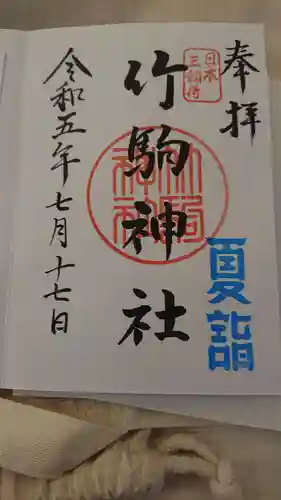 奉拝
日本
三稲荷
夏詣
竹駒神社
令和五年七月十七日